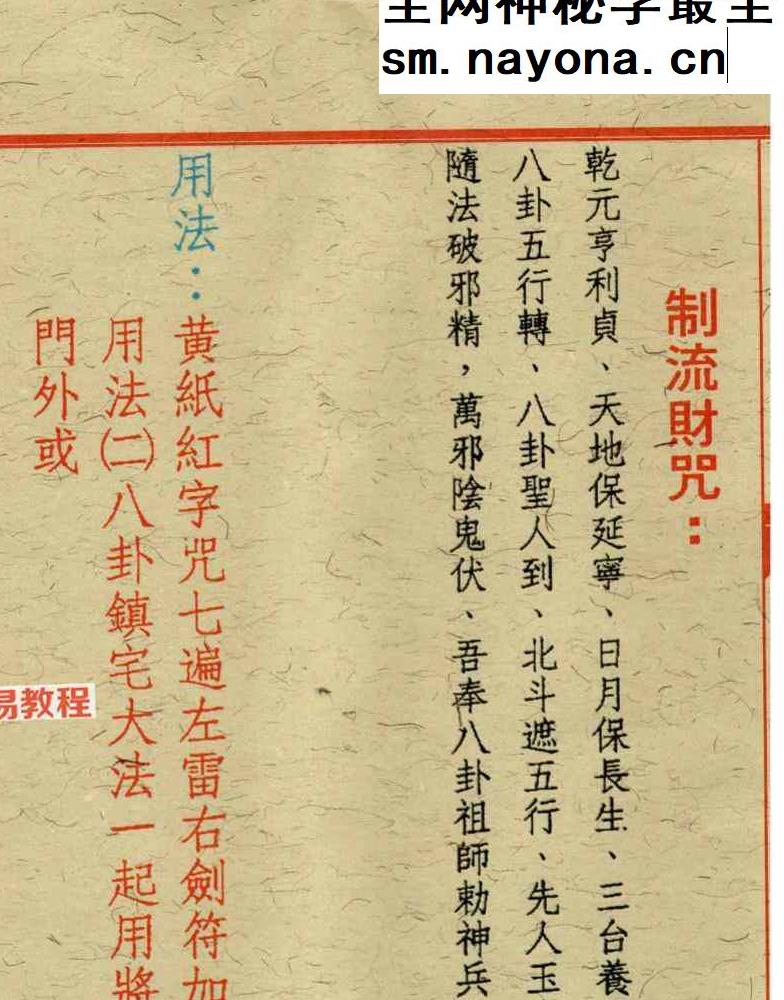 sm.nayona.cn
制流財咒：
乾元亨利貞、天地保延寧、日月保長生、三台養
八卦五行轉、八卦聖人到、北斗遮五行、先人玉
隨法破邪精，萬邪陰鬼伏、吾奉八卦祖師勅神兵
用法：黄紙紅字咒七遍左雷右劍符加
用法㈡八卦鎮宅大法一起用將
門外或
易教程